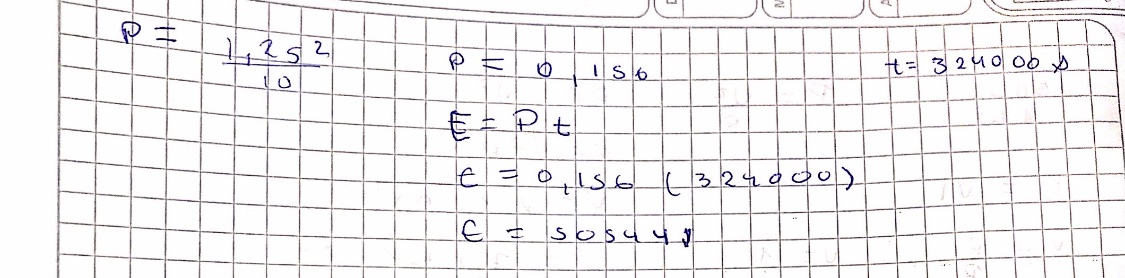 P = 1,25²
10
P = 0,156
t = 324000 s
E = P t
E = 0,156 (324000)
E = 50544 J